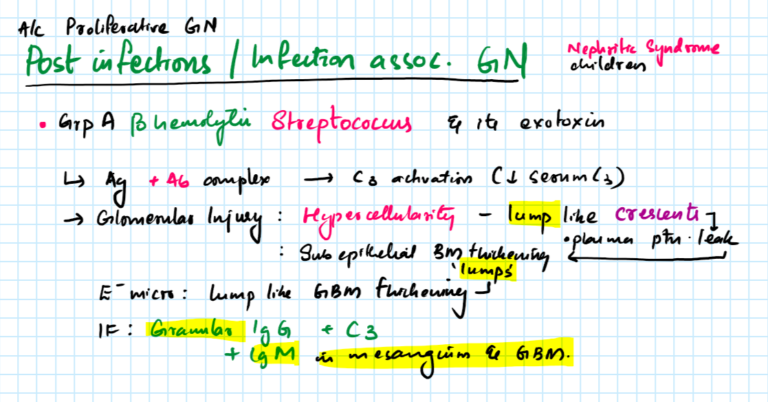 A/c Proliferative GN
Post infections / Infection assoc. GN
Nephritic Syndrome
children
• Grp A β hemolytic Streptococcus & its exotoxin
↳ Ag + Ab complex → C3 activation (↓ serum C3)
→ Glomerular Injury : Hypercellularity - lump like crescents
• plasma ptn. leak
: Sub epithelial BM thickening
'lumps'
E⁻ micro : lump like GBM thickening
IF : Granular IgG + C3
+ IgM in mesangium & GBM.